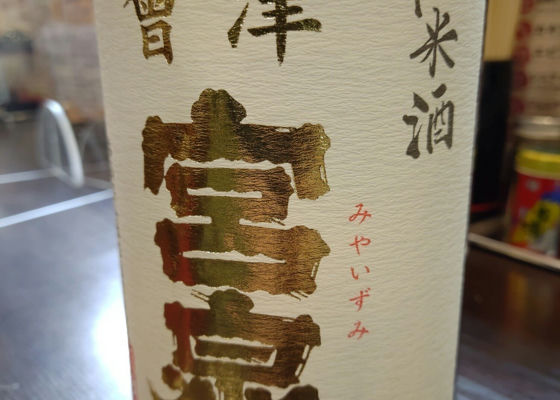 米酒
會津
宮泉
みやいずみ